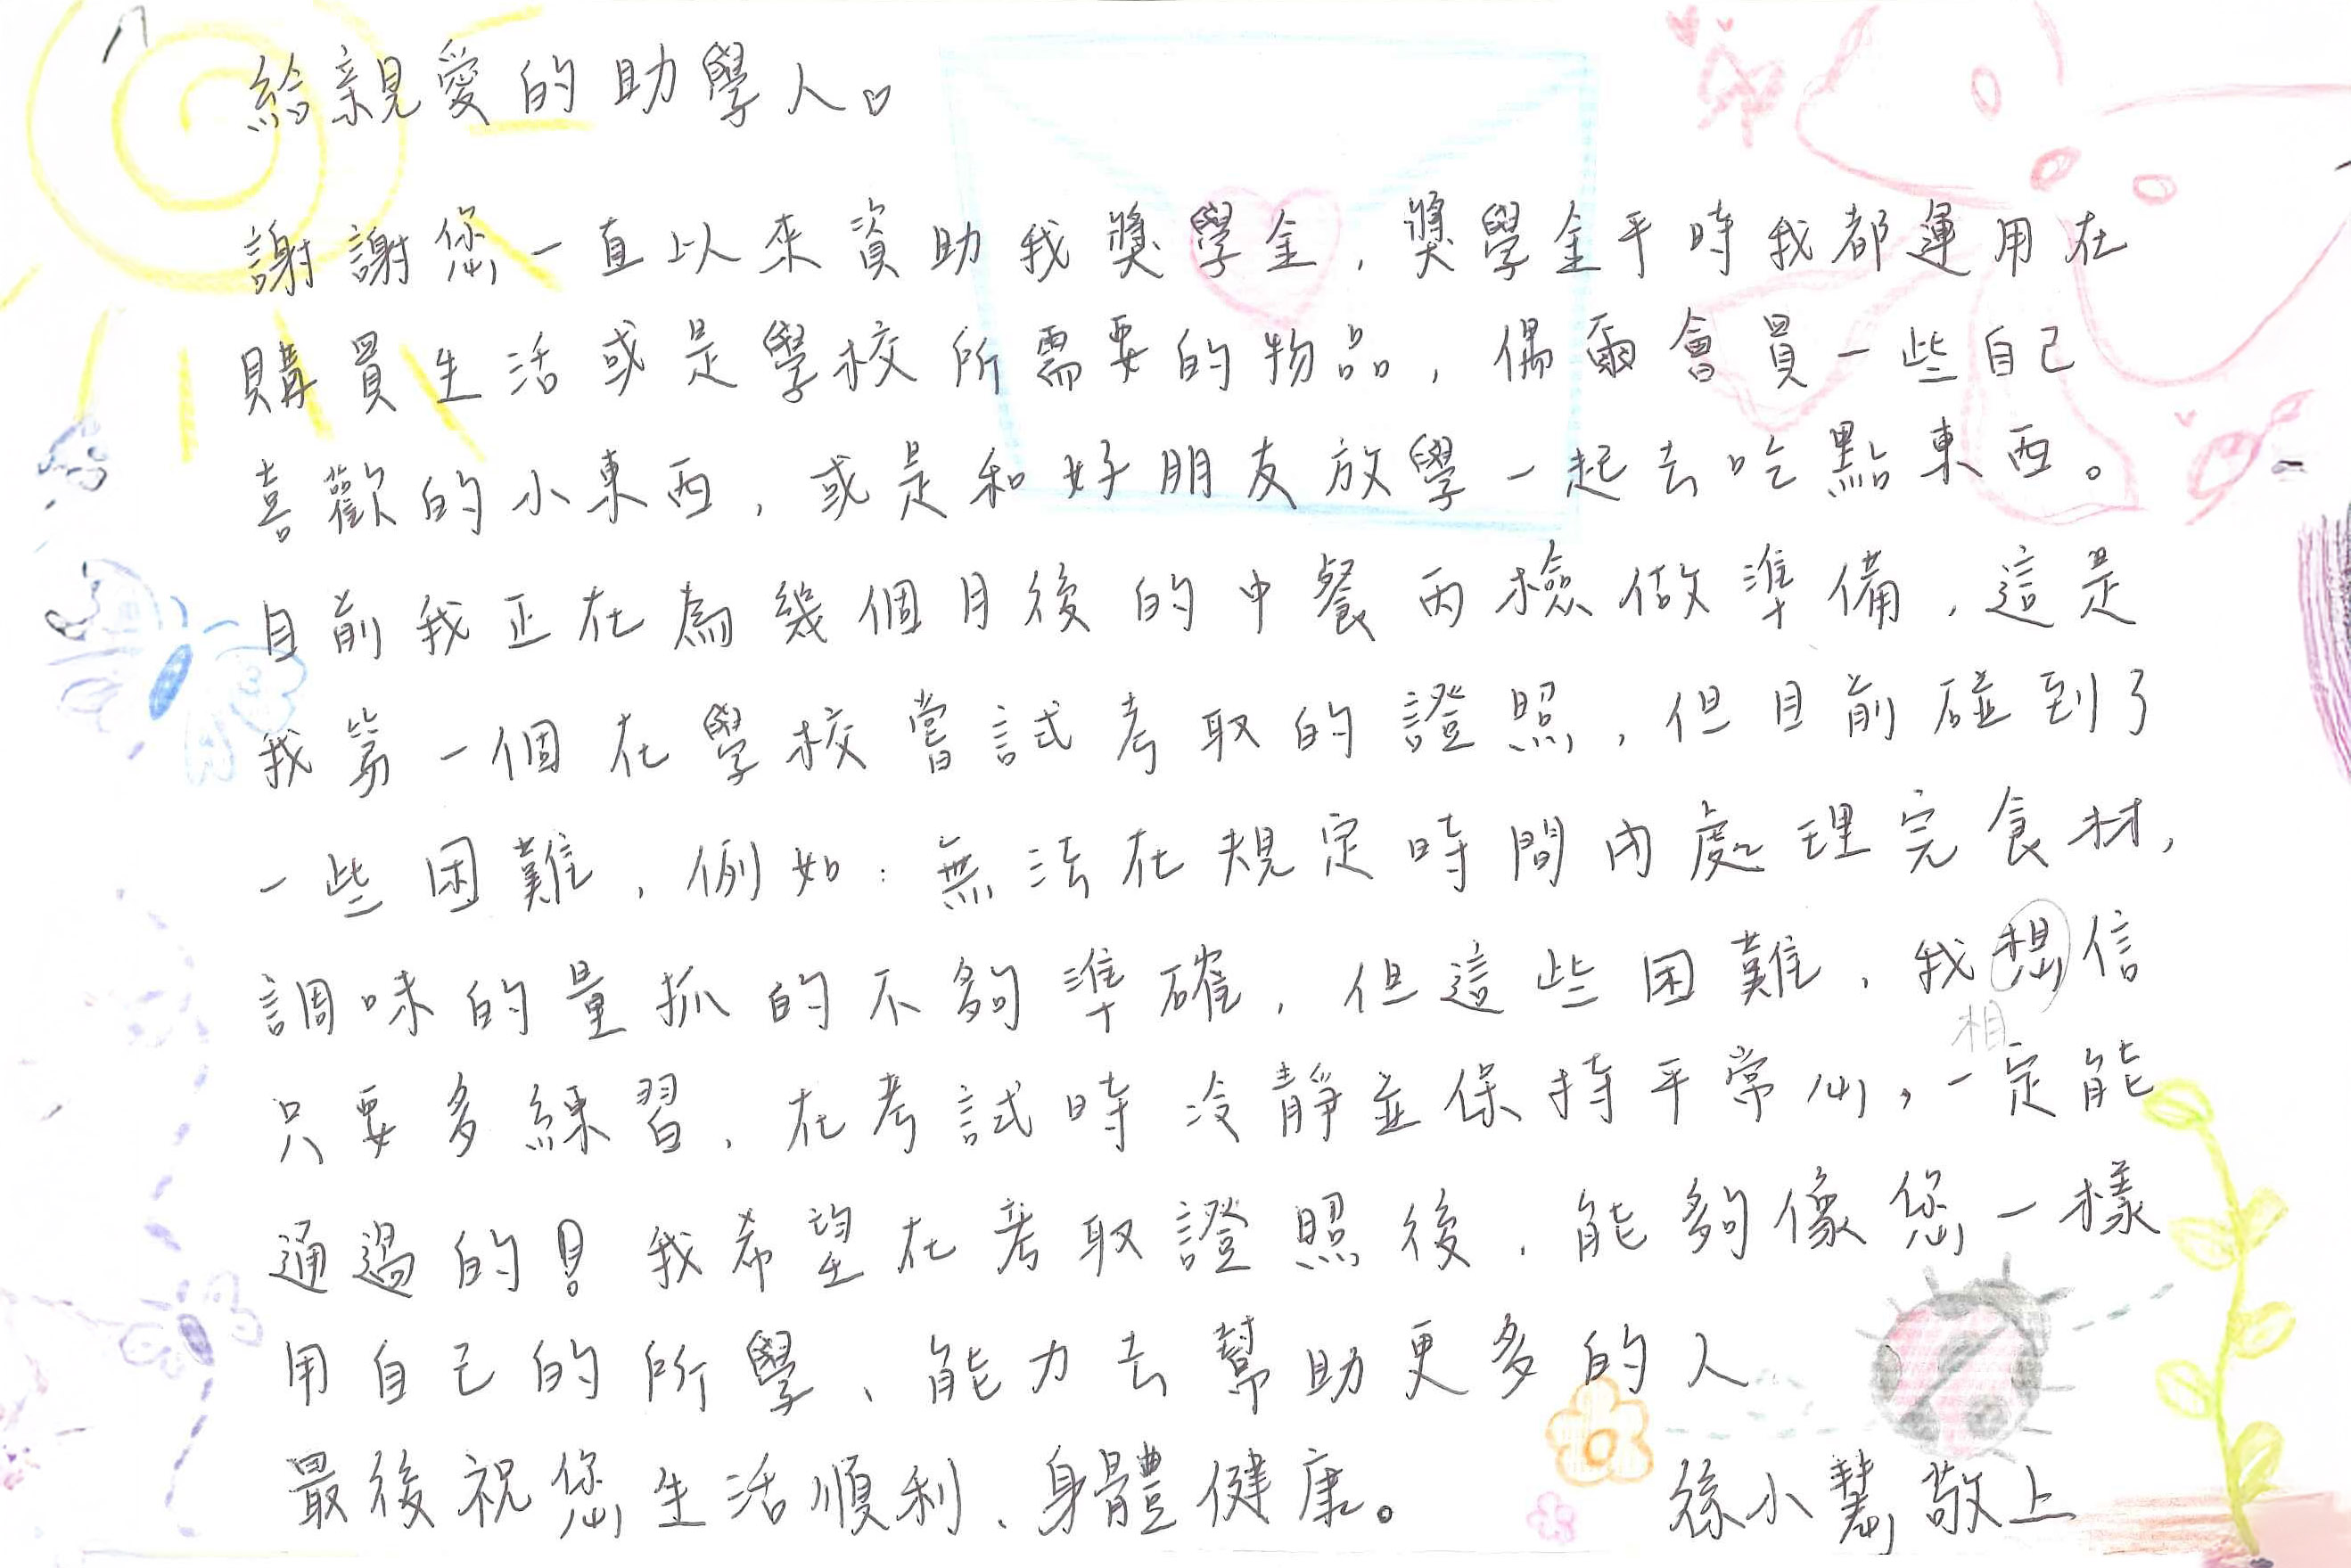 給親愛的助學人♡
謝謝您一直以來資助我獎學金，獎學金平時我都運用在
購買生活或是學校所需要的物品，偶爾會買一些自己
喜歡的小東西，或是和好朋友放學一起去吃點東西。
目前我正在為幾個月後的中餐丙檢做準備，這是
我第一個在學校嘗試考取的證照，但目前碰到了
一些困難，例如：無法在規定時間內處理完食材，
調味的量抓的不夠準確，但這些困難，我想信
相
只要多練習，在考試時冷靜並保持平常心，一定能
通過的！我希望在考取證照後，能夠像您一樣
用自己的所學、能力去幫助更多的人
最後祝您生活順利、身體健康。 徐小慧敬上